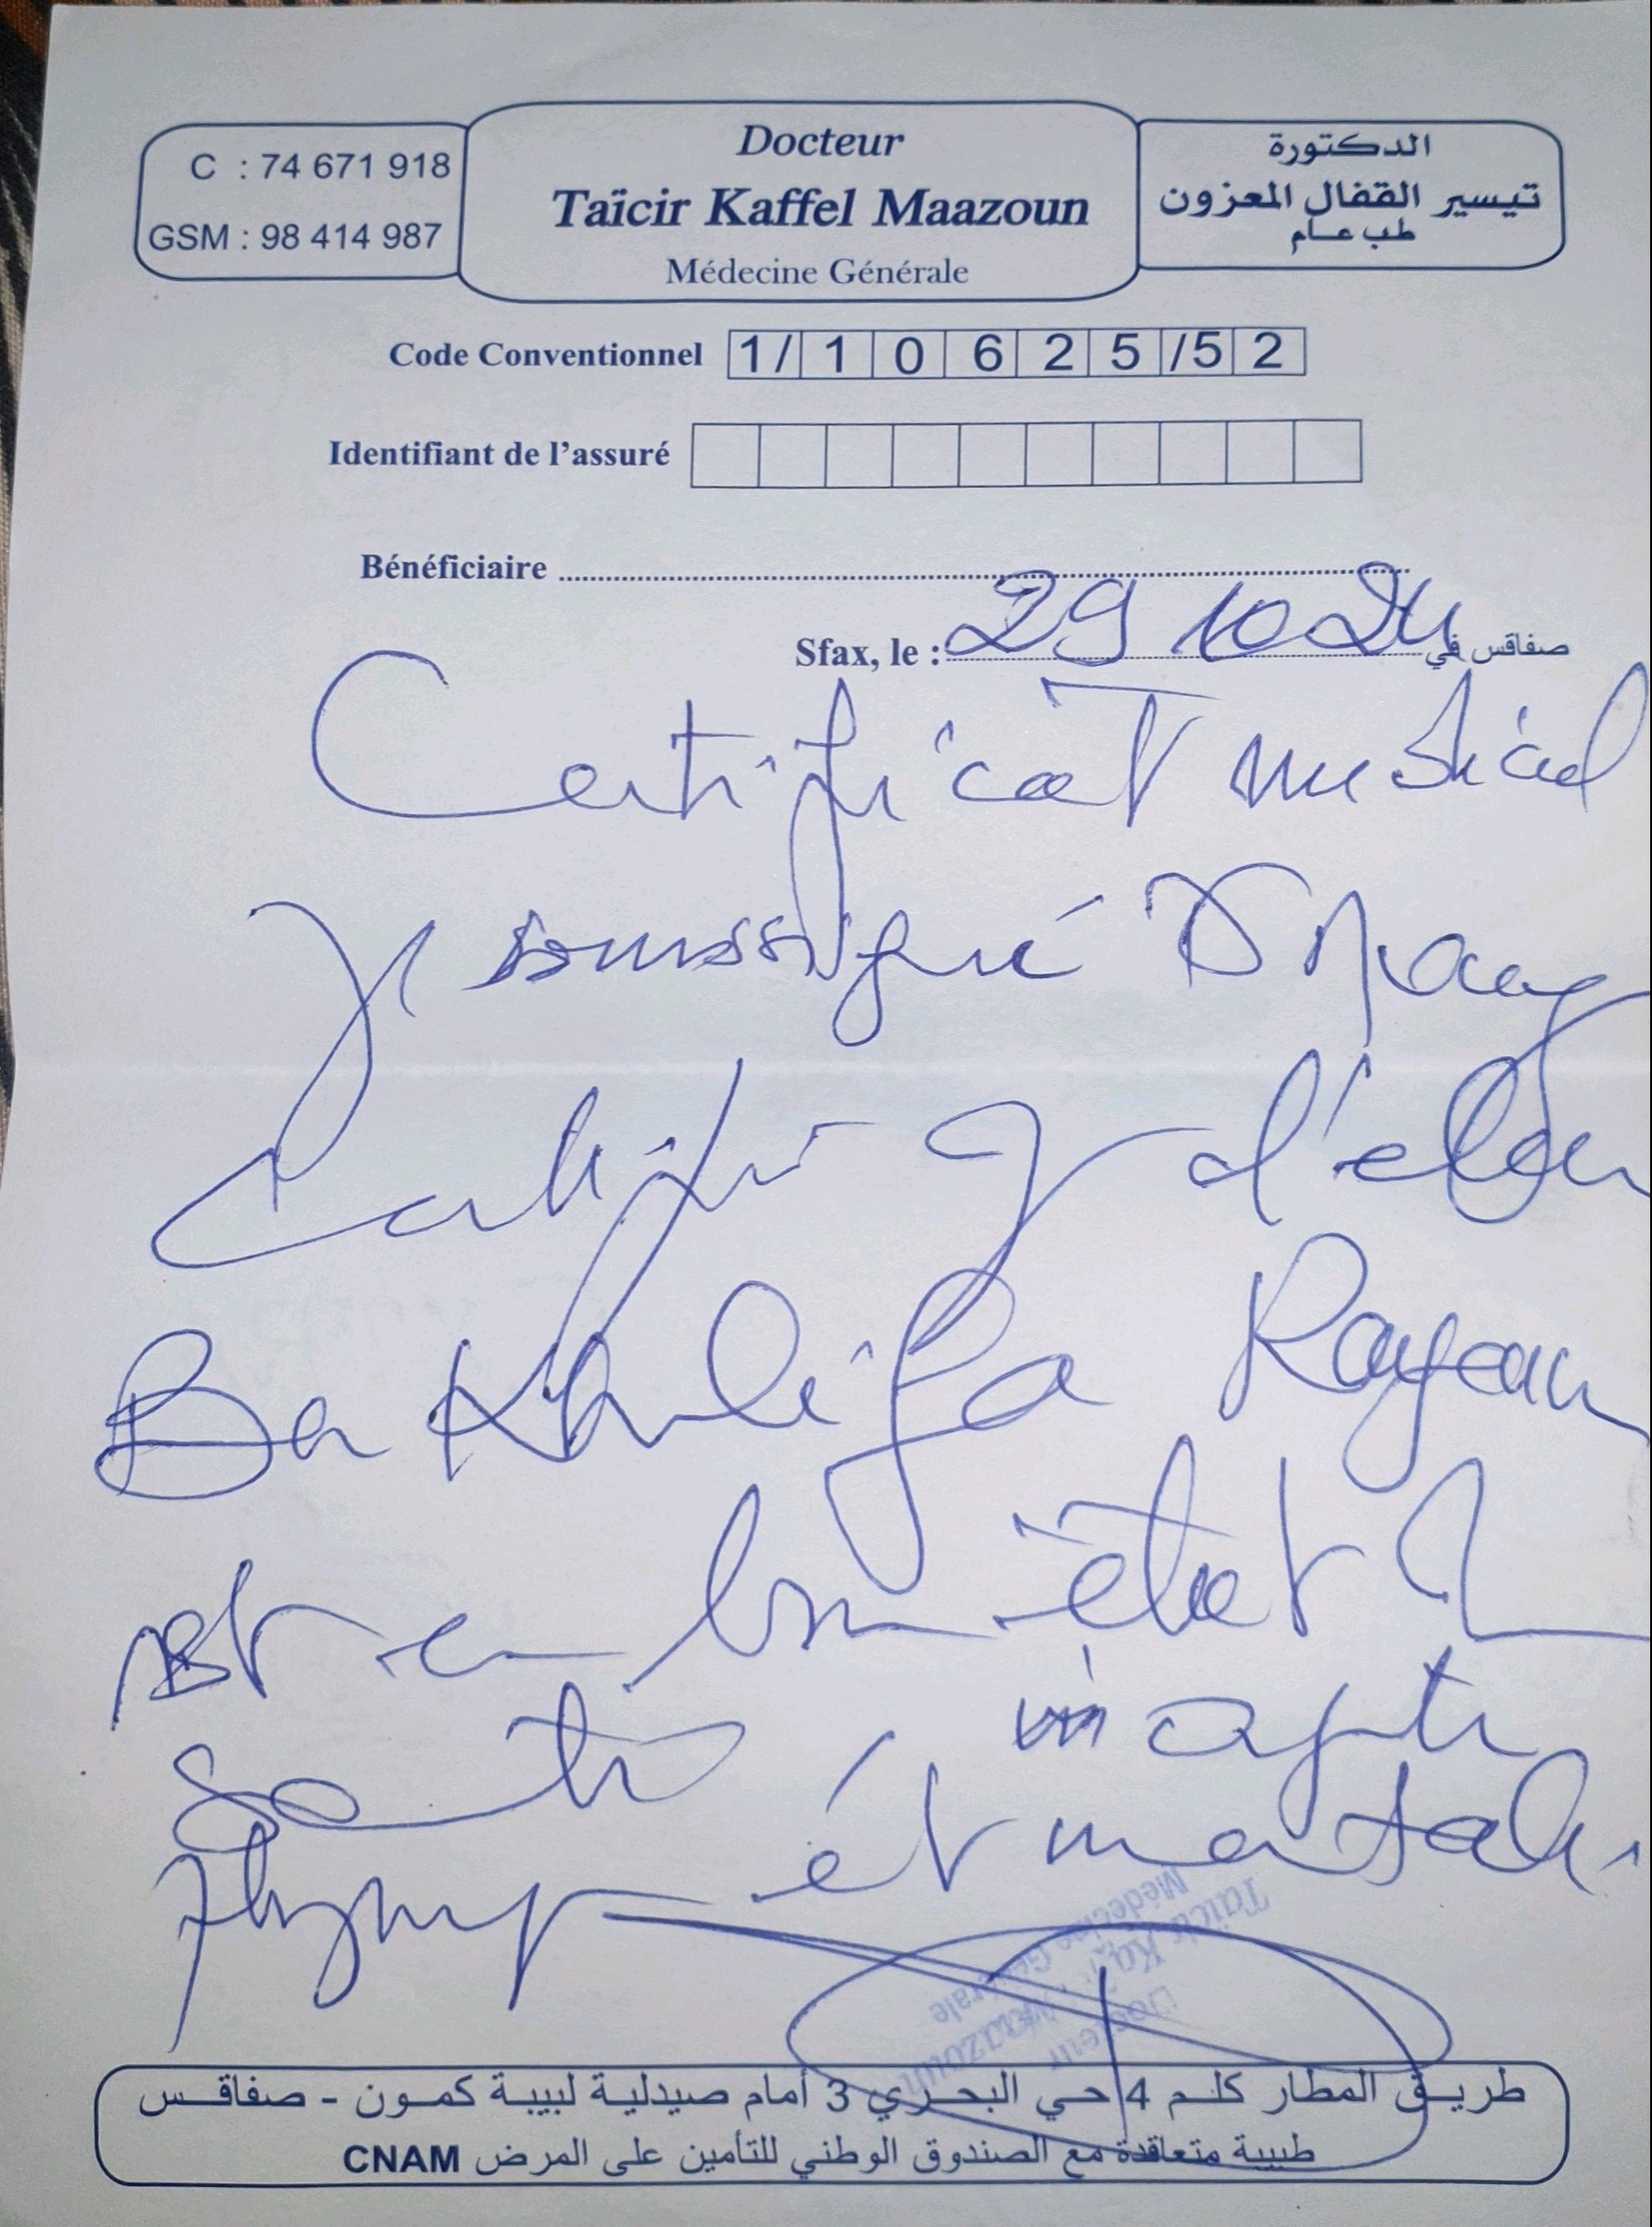 C : 74 671 918
GSM : 98 414 987
Docteur
Taïcir Kaffel Maazoun
Médecine Générale
الدكتورة
تيسير القفال المعزون
طب عام
Code Conventionnel 1/ 1 0 6 2 5 /5 2
Identifiant de l'assuré
Bénéficiaire
Sfax, le : 29 10 24 صفاقس في
Certificat médical
Je soussigné Dr
d'élève
Ben Khlifa Rayen
est en bon état
Santé, apte
et
Docteur
Taïcir Kaffel Maazoun
Médecine Générale
طريق المطار كلم 4 حي البحري 3 أمام صيدلية لبيبة كمون - صفاقس
طبيبة متعاقدة مع الصندوق الوطني للتأمين على المرض CNAM